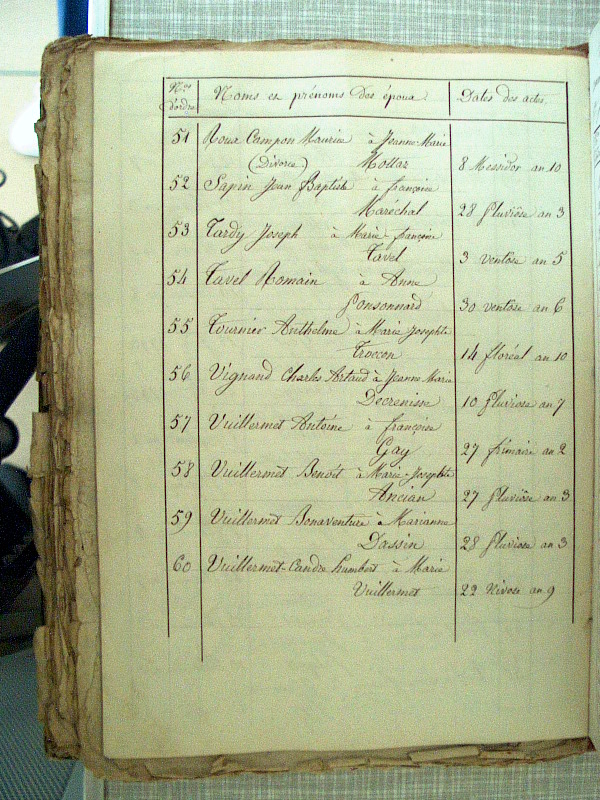 Nos d'ordre Noms et prénoms des époux Dates des actes
51 Roux Campon Maurice à Jeanne-Marie
(Divorce) Mollaz 8 Messidor an 10
52 Sapin Jean Baptiste à françoise
Maréchal 28 Pluviôse an 3
53 Tardy Joseph à Marie-françoise
Tavel 3 ventôse an 5
54 Tavel Romain à Anne
Ponsonnard 30 ventôse an 6
55 Tournier Anthelme à Marie Josephte
Troccon 14 floréal an 10
56 Vignand Charles Artaud à Jeanne Marie
Decrenisse 10 Pluviose an 7
57 Vuillermet Antoine à françoise
Gay 27 frimaire an 2
58 Vuillermet Benoit à Marie-Josephte
Ancian 27 Pluviôse an 3
59 Vuillermet Bonaventure à Marianne
Dassin 28 Pluviose an 3
60 Vuillermet-Candre humbert à Marie
Vuillermet 22 Nivose an 9